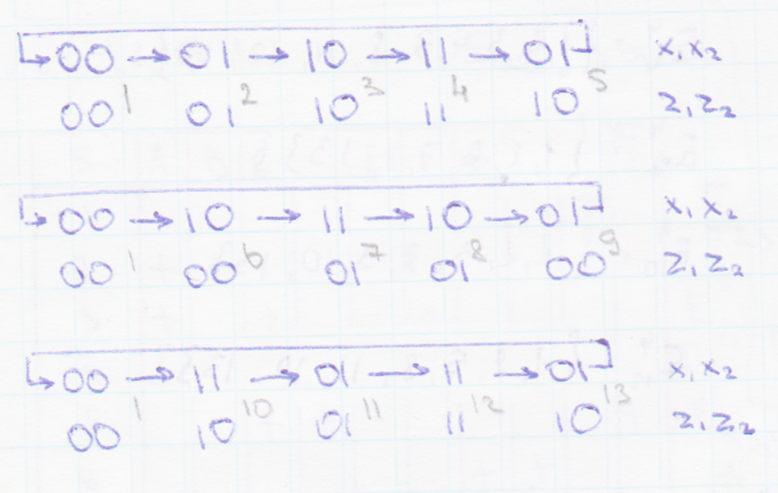 00 → 01 → 10 → 11 → 01 x₁x₂
00 ¹ 01 ² 10 ³ 11 ⁴ 10 ⁵ z₁z₂
00 → 10 → 11 → 10 → 01 x₁x₂
00 ¹ 00 ⁶ 01 ⁷ 01 ⁸ 00 ⁹ z₁z₂
00 → 11 → 01 → 11 → 01 x₁x₂
00 ¹ 10 ¹⁰ 01 ¹¹ 11 ¹² 10 ¹³ z₁z₂